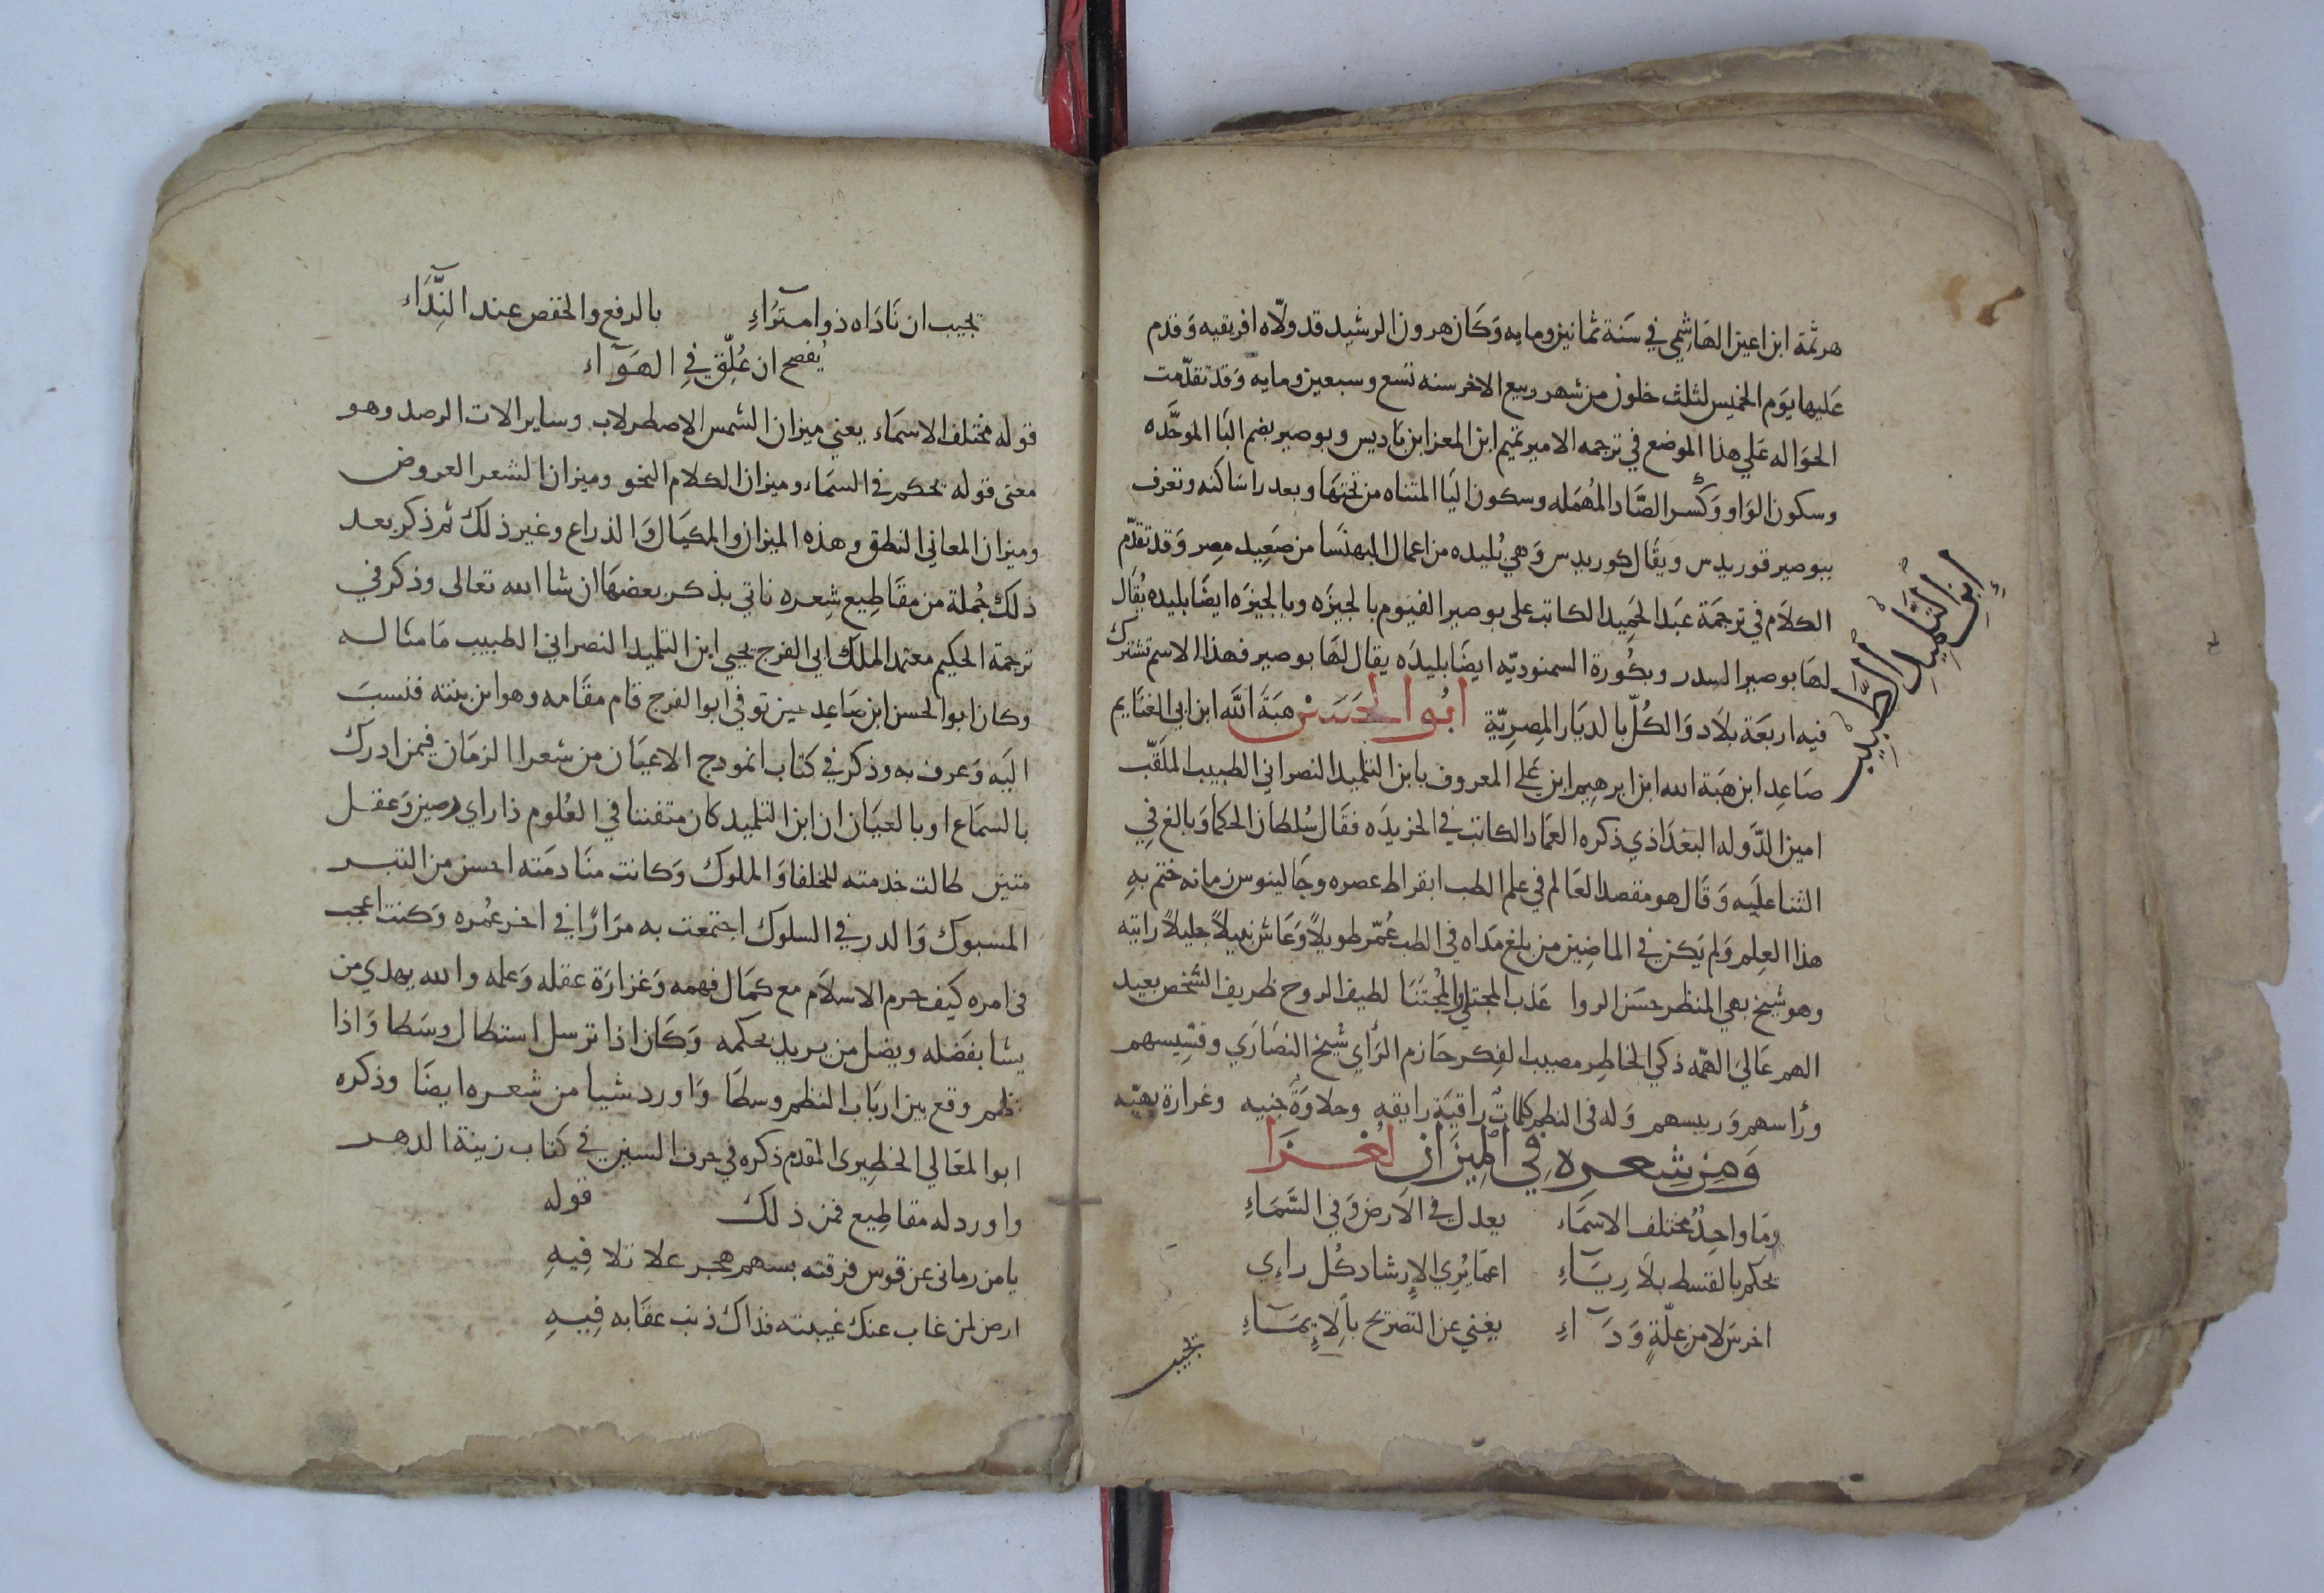 هرثمة ابن اعين الهاشمي في سَنة ثمانين ومايه وَكَان هرون الرشيد قد ولّاه افريقيه وَقدم
عَليها يوَم الخميس لثلث خلون من شهر ربيع الاخر سنه تسع وسبعين ومايه وَقد تقدّمت
الحَواله عَلي هذا الموضع في ترجمه الامير تميم ابن المعز ابن بَاديس وبوصير بضم البَا الموحَّده
وسكون الوَاو وَكَسر الصَّاد المُهمَله وسكون اليَا المثناه من تحتهَا وبعد راسَاكنه وتعرف
ببوصير قوريدس ويقَال كوريدس وَهي بُليده من اعمال البهنسَا من صَعِيد مِصر وَقد تقدّم
الكلاَم في ترجمَة عبَد الحَمِيد الكاتب على بوصير الفيَوم بالجيزَه وبالجيزَه ايضًا بليده يُقَال
لهَا بوصير السدر وبكُورة السمنوديّه ايضًا بليدَه يقال لهَا بوصير فهذا الاسم تشترك
فيه اربعَة بلَاد وَالكُلّ بالديَار المِصرِيّة ابُو الحَسَن هبَة الله ابن ابي الغنَايم
صَاعِد ابن هبَة الله ابن ابرهِيم ابن عَلي المعروف بابن التلميد النصراني الطبيب الملَقّب
امين الدَّوله البَغدَاذي ذكره العمَاد الكاتب في الخريدَه فقَال سُلطان الحكمَا وَبالغ في
الثنا عليَه وَقَال هو مقصد العَالم في علم الطب ابقراط عصره وجَالينوس زمانه ختم بهِ
هذا العِلم وَلم يَكن في الماضِين من بلغ مَداه في الطب عُمّر طويلاً وَعَاش نبيلاً جليلاً رايته
وهو شيخ بهي المنظر حسَن الروا عَذب المجتلي والمُجتَنَا لطيف الروح ظريف الشخص بعيد
الهم عَالي الهمّه ذكي الخاطِر مصيب الفِكر حَازم الرأي شيخ النصَارَي وقسّيسهم
ورأسهم وَرييسهم وَله في النظم كلمَاتٌ رَاقيَة رايقه وحلاوَةٌ جنيه وغرارة بهيّه
وَمن شِعره في المِيزَان لغزا
ومَا واحِدٌ مختلف الاسمَاء يعدل في الاَرض وَفي السَّمَاءِ
يحكم بالقسط بلاَ رِيآءِ اعمَا يُرِي الإِرشاد كُل راءِي
اخرسَ لا من عِلّةٍ وَدَآءِ يغني عن التصريح بألإِيمَآءِ
تجيب
إِبنُ التِّلمِيدِ الطَّبيبِ
تجيب ان نَادَاه ذو امتِرآءِ بالرفع والخفض عند النِّدَاءَ
يُفصح ان عُلِّق في الهَوَآء
قوله مختلف الاسمَاء يعني ميزان الشمس الاصطرلاب وساير الات الرصد وهو
معنى قوله يحكم في السمَاء وميزان الكلام النحو وميزان الشعر العروض
وميزان المعاني النطق وهذه الميزان والمكيَال وَالذراع وغير ذلك ثم ذكر بعد
ذلك جُملة من مقَاطِيع شِعره ناتي بذكر بعضهَا ان شا الله تعالى وذكر في
ترجمَة الحكيم معتمد الملك ابي الفرج يحيي ابن التلميد النصراني الطبيب مَا مثَاله
وكان ابو الحسن ابن صَاعِد حين توفي ابو الفرج قام مقَامه وهو ابن بنته فنسبَ
اليَه وَعرف به وذكر في كتَاب انموذج الاعيَان من شعرا الزمَان فيمن ادرك
بالسمَاع او بالعيَان ان ابن التلميد كان متفننا في العُلوم ذا راي رصين وَعقل
متين طالت خدمته للخلفا وَالملوك وَكانت منَادمَته احسن من التبر
المسبوك وَالدر في السلوك اجتمعت به مرَارًا في اخر عُمره وَكنت اعجب
في امره كيف حرم الاسلَام مع كمَال فهمه وَغزارَة عقله وَعلمه والله يهدي من
يشا بفضَله ويضل من يريد بحكمه وَكَان اذا ترسل استطال وسَطا وَاذا
نظم وقع بين اربَاب النظم وسطَا وَاورد شيا من شعره ايضَا وذكره
ابو المعَالي الخطِيري المقدم ذكره في حرف السين في كتاب زينة الدهر
واورد له مقاطِيع فمن ذلك قوله
يا من رماني عن قوس فرقته بسهم هجر علا تلا فِيهِ
ارض لمن غاب عنك غيبته فذاك ذنب عقَابه فِيهِ